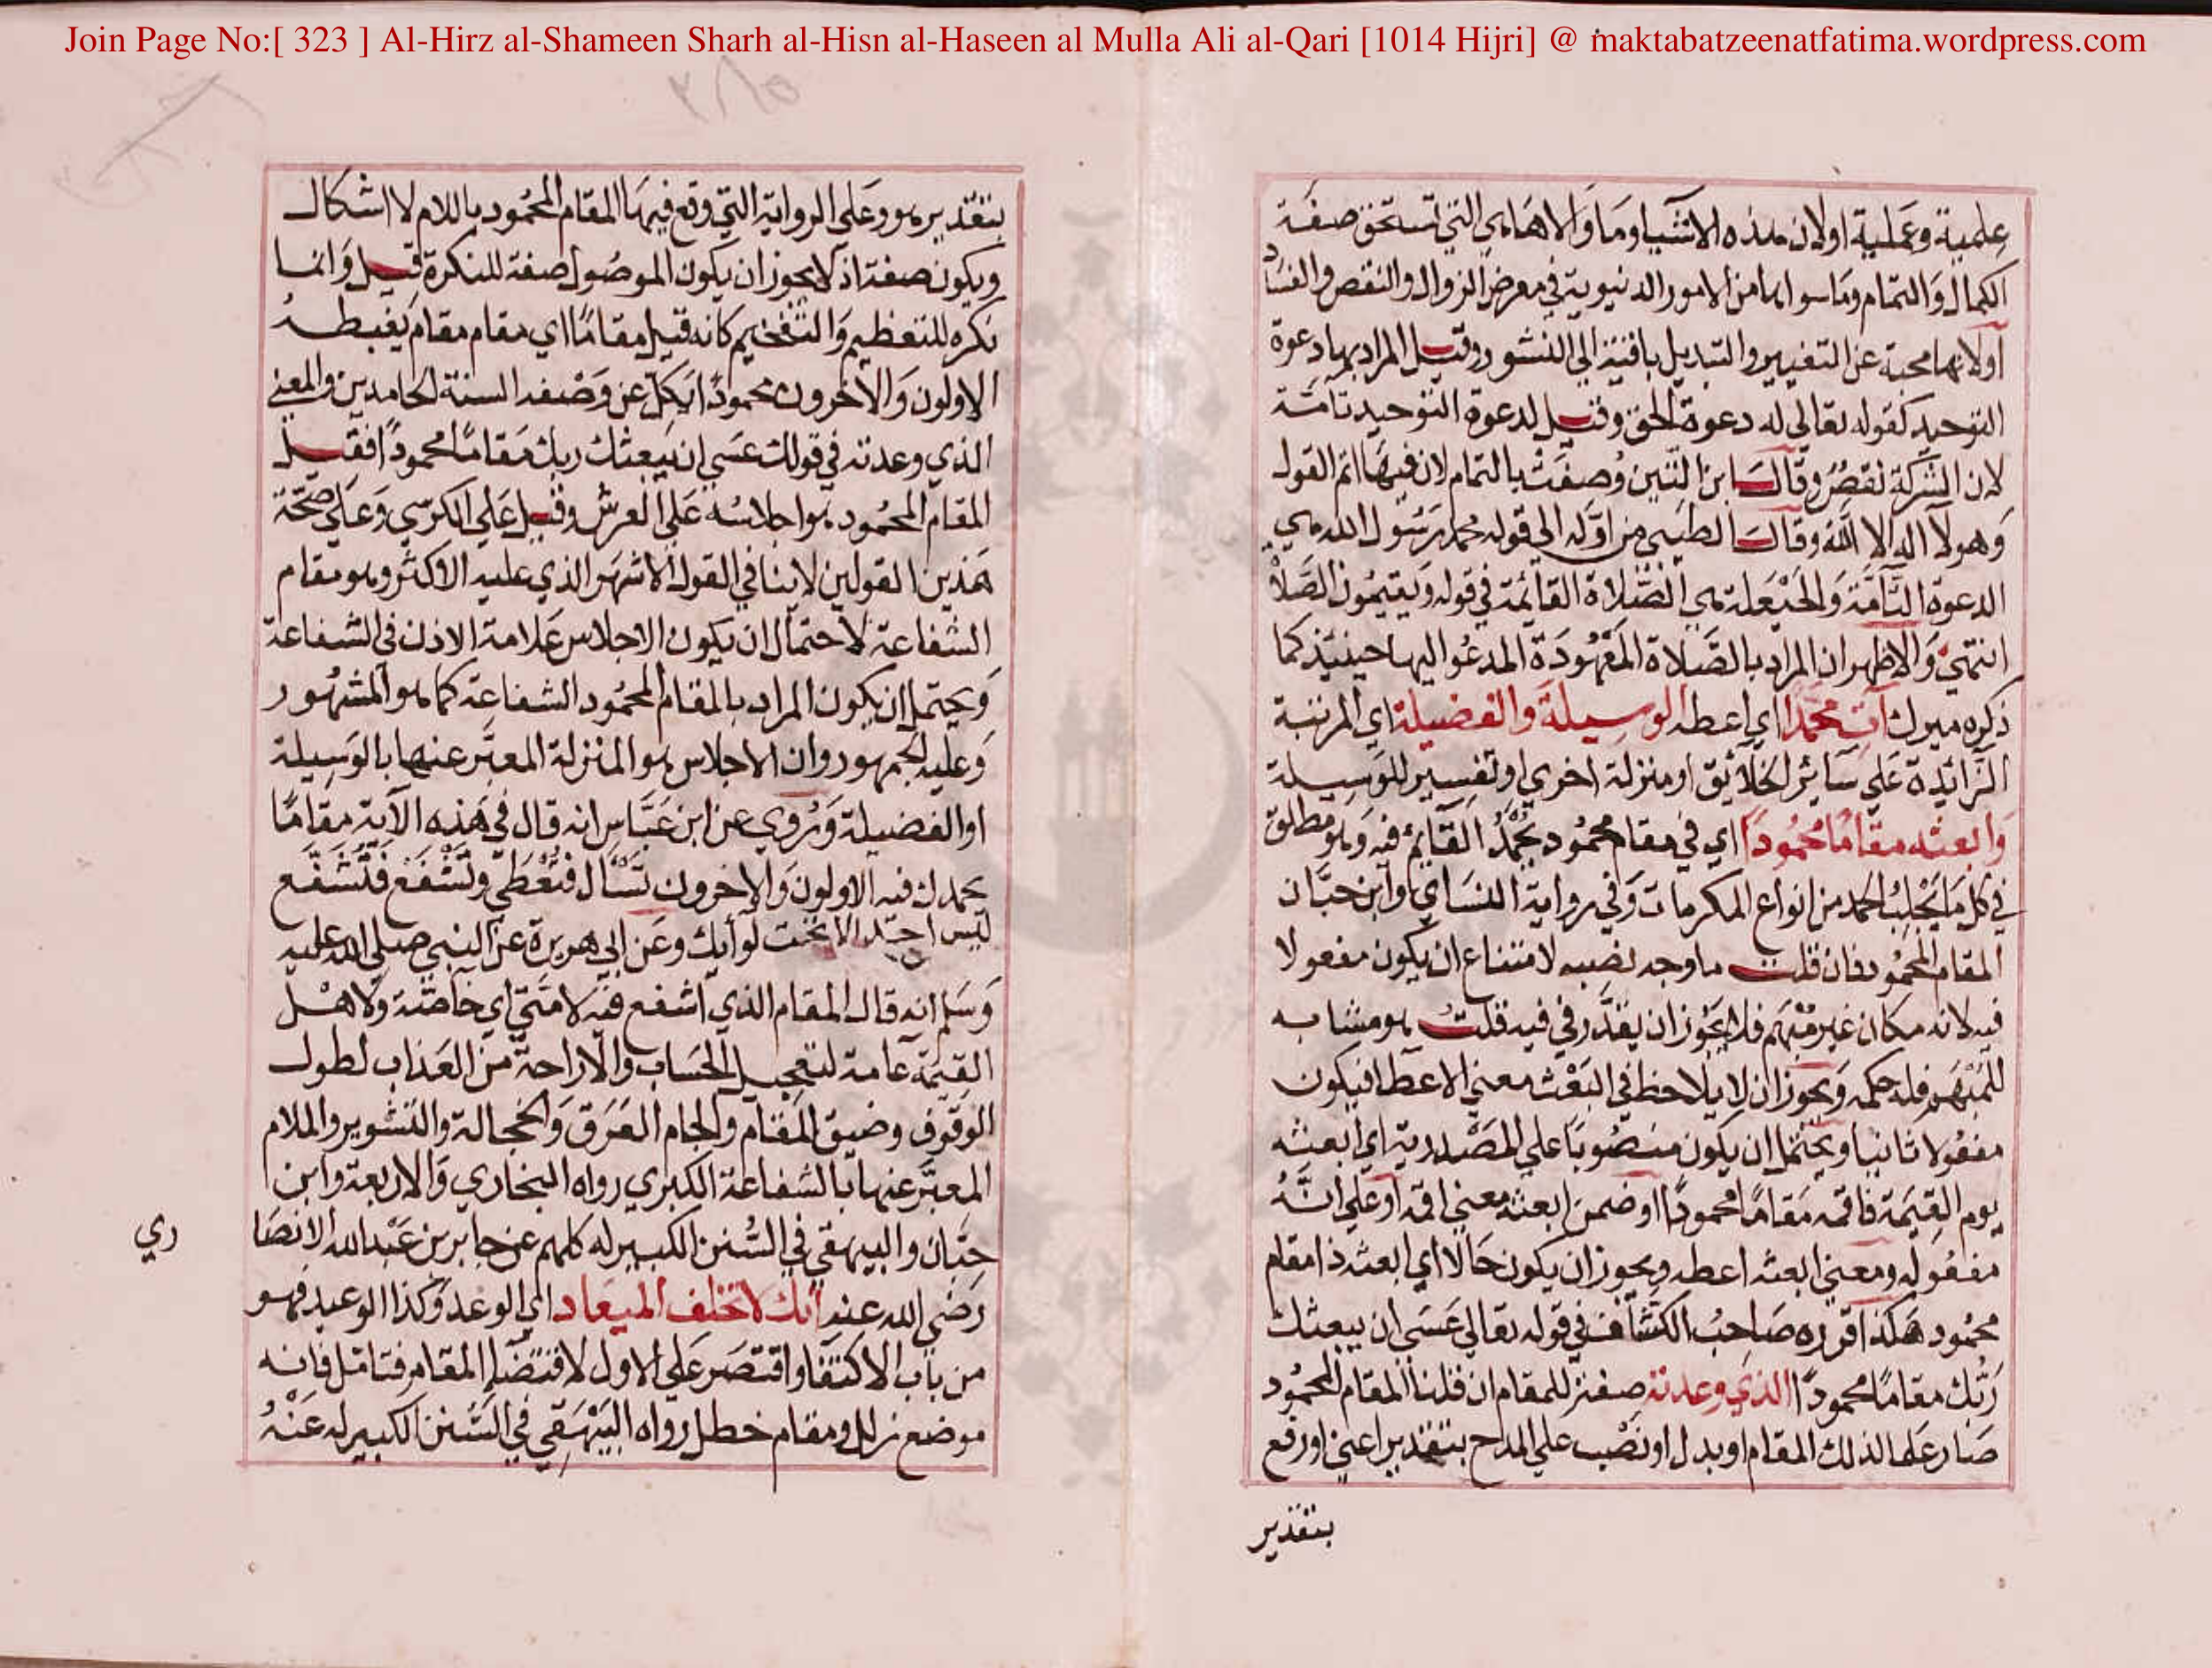 Join Page No:[ 323 ] Al-Hirz al-Shameen Sharh al-Hisn al-Haseen al Mulla Ali al-Qari [1014 Hijri] @ maktabatzeenatfatima.wordpress.com
علمية وعملية او لان هذه الاشيا وما والاها هي التي تستحق صفة
الكمال والتمام وما سواها من الامور الدنيوية في معرض الزوال والنقص والفساد
او لانها محمية عن التغيير والتبديل باقية الي النشور وقيل المراد بها دعوة
التوحيد كقوله تعالي له دعوة الحق وقيل لدعوة التوحيد تامة
لان الشركة نقص وقال ابن التين وصفت بالتمام لان فيها اتم القول
وهو لا اله الا الله وقال الطيبي من اوله الي قوله محمد رسول الله هي
الدعوة التامة والحيعلة هي الصلاة القائمة في قوله ويقيمون الصلاة
انتهي والاظهر ان المراد بالصلاة المعهودة المدعو اليها حينئذ كما
ذكره ميرك آت محمدا اي اعطه الوسيلة والفضيلة اي المرتبة
الزائدة علي سائر الخلائق او منزلة اخري او تفسير للوسيلة
وابعثه مقاما محمودا اي في مقام محمود يحمد القائم فيه وهو مطلق
في كل ما يجلب الحمد من انواع المكرمات وفي رواية النساي وابن حبان
المقام المحمود فان قلت ما وجه نصبه لامتناع ان يكون مفعولا
فيه لانه مكان غير مبهم فلا يجوز ان يقدر في فيه قلت هو مشابه
للمبهم فله حكمه ويجوز ان لا يلاحظ في البعث معني الاعطا فيكون
مفعولا ثانيا ويحتمل ان يكون منصوبا علي المصدرية اي ابعثه
يوم القيمة فاقمه مقاما محمودا او ضمن ابعثه معني اقمه او علي انه
مفعول به ومعني ابعثه اعطه ويجوز ان يكون حالا اي ابعثه ذا مقام
محمود هكذا قرره صاحب الكشاف في قوله تعالي عسي ان يبعثك
ربك مقاما محمودا الذي وعدته صفة للمقام ان قلنا المقام المحمود
صار علما لذلك المقام او بدل او نصب علي المدح بتقدير اعني او رفع
بتقدير
بتقدير هو وعلي الرواية التي وقع فيها المقام المحمود باللام لا اشكال
ويكون صفة اذ لا يجوز ان يكون الموصول صفة للنكرة قيل وانما
نكره للتعظيم والتفخيم كانه قيل مقاما اي مقام مقام يغبطه
الاولون والاخرون محمودا تكل عن وصفه السنة الحامدين والمعني
الذي وعدته في قولك عسي ان يبعثك ربك مقاما محمودا فقيل
المقام المحمود هو اجلاسه علي العرش وقيل علي الكرسي وعلي صحة
هذين القولين لا ينافي القول الاشهر الذي عليه الاكثر وهو مقام
الشفاعة لاحتمال ان يكون الاجلاس علامة الاذن في الشفاعة
ويحتمل ان يكون المراد بالمقام المحمود الشفاعة كما هو المشهور
وعليه الجمهور وان الاجلاس هو المنزلة المعبر عنها بالوسيلة
او الفضيلة وروي عن ابن عباس انه قال في هذه الآية مقاما
يحمدك فيه الاولون والاخرون تسأل فتعطي وتشفع فتشفع
ليس احد الا تحت لوأيك وعن ابي هريرة عن النبي صلي الله عليه
وسلم انه قال المقام الذي اشفع فيه لامتي اي خاصة ولاهل
القيمة عامة لتعجيل الحساب والاراحة من العذاب لطول
الوقوف وضيق المقام والجام العرق والخجالة والتشوير والملام
المعبر عنها بالشفاعة الكبري رواه البخاري والاربعة وابن
حبان والبيهقي في السنن الكبير له كلهم عن جابر بن عبد الله الانصا
ري
رضي الله عنه انك لا تخلف الميعاد اي الوعد وكذا الوعيد فهو
من باب الاكتفا واقتصر علي الاول لاقتضا المقام فتامل فانه
موضع زلل ومقام خطل رواه البيهقي في السنن الكبير له عنه